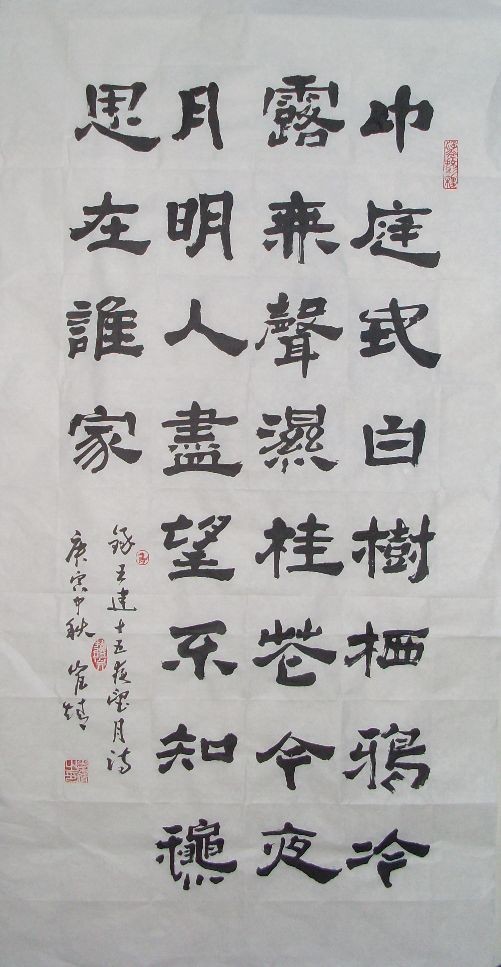 中庭地白樹栖鴉冷
露無聲濕桂花今夜
月明人盡望不知龝
思在誰家
錄王建十五夜望月詩
庚寅中秋